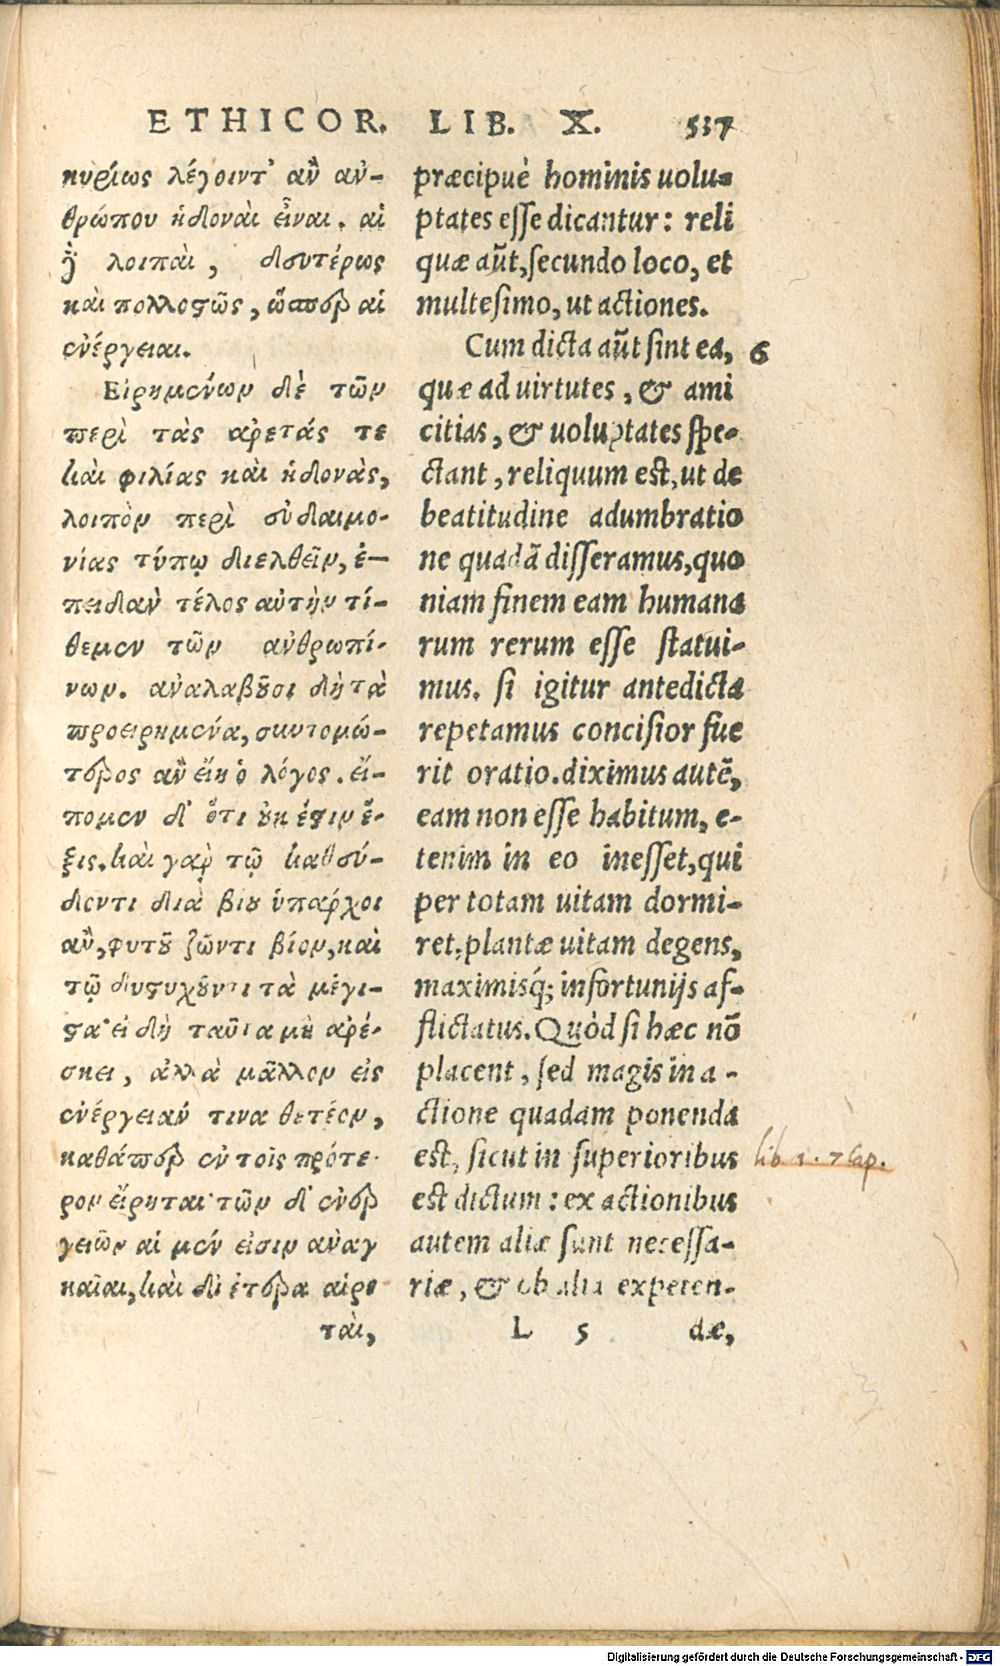 ETHICOR. LIB. X. 537
κυρίως λέγοιντ' ἂν ἀν-
θρώπου ἡδοναὶ εἶναι. αἱ
δὲ λοιπαὶ, δευτέρως
καὶ πολλοστῶς, ὥσπερ αἱ
ἐνέργειαι.
Εἰρημένων δὲ τῶν
περὶ τὰς ἀρετάς τε
καὶ φιλίας καὶ ἡδονὰς,
λοιπὸν περὶ εὐδαιμο-
νίας τύπῳ διελθεῖν, ἐ-
πειδὰν τέλος αὐτὴν τί-
θεμεν τῶν ἀνθρωπί-
νων. ἀναλαβοῦσι δὴ τὰ
προειρημένα, συντομώ-
τερος ἂν εἴη ὁ λόγος. εἴ-
πομεν δ' ὅτι οὐκ ἔστιν ἕ-
ξις. καὶ γὰρ τῷ καθεύ-
δεντι διὰ βίου ὑπάρχοι
ἂν, φυτοῦ ζῶντι βίον, καὶ
τῷ δυστυχοῦντι τὰ μέγι-
στα· εἰ δὴ ταῦτα μὴ ἀρέ-
σκει, ἀλλὰ μᾶλλον εἰς
ἐνέργειάν τινα θετέον,
καθάπερ ἐν τοῖς πρότε-
ρον εἴρηται· τῶν δ' ἐνερ
γειῶν αἱ μέν εἰσιν ἀναγ
καῖαι, καὶ δι' ἕτερα αἱρε
ταὶ,
præcipuè hominis uolu-
ptates esse dicantur: reli
quæ aũt, secundo loco, et
multesimo, ut actiones.
Cum dicta aũt sint ea, 6
quæ ad uirtutes, & ami
citias, & uoluptates spe-
ctant, reliquum est, ut de
beatitudine adumbratio
ne quadã disseramus, quo
niam finem eam humana
rum rerum esse statui-
mus. si igitur antedicta
repetamus concisior fue
rit oratio. diximus autẽ,
eam non esse habitum, e-
tenim in eo inesset, qui
per totam uitam dormi-
ret, plantæ uitam degens,
maximisq́; infortunijs af-
flictatus. Quòd si hæc nõ
placent, sed magis in a-
ctione quadam ponenda
est, sicut in superioribus
lib 1. 7 Cap.
est dictum: ex actionibus
autem aliæ sunt necessa-
riæ, & ob alia expeten-
L 5 dæ,
Digitalisierung gefördert durch die Deutsche Forschungsgemeinschaft - DFG